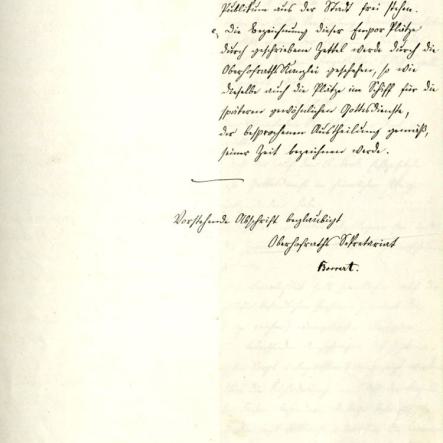 Publikum aus der Stadt frei stehen.
c, Die Bezeichnung dieser Empor Plätze
durch geschriebene Zettel werde durch die
Oberhofraths Kanzlei geschehen, so wie
dieselbe auch die Plätze im Schiff für die
späteren gewöhnlichen Gottesdienste,
der besprochenen Austheilung gemäß,
seiner Zeit bezeichnen werde.
Vorstehende Abschrift beglaubigt
Oberhofraths Sekretariat